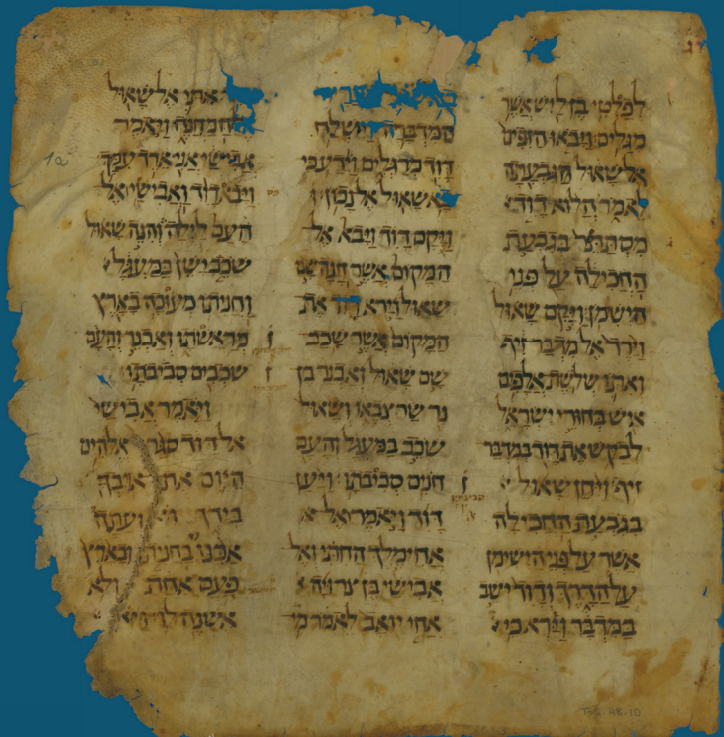 לפלטי בן ליש אשר
מגלים ויבאו הזפים
אל שאול הגבעתה
לאמר הלוא דוד
מסתתר בגבעת
החכילה על פני
הישמן ויקם שאול
וירד אל מדבר זיף
ואתו שלשת אלפים
איש בחורי ישראל
לבקש את דוד במדבר
זיף ויחן שאול
בגבעת החכילה
אשר על פני הישימן
על הדרך ודוד ישב
במדבר וירא כי
המדברה וישלח
דוד מרגלים וידע כי
בא שאול אל נכון
ויקם דוד ויבא אל
המקום אשר חנה שם
שאול וירא דוד את
המקום אשר שכב
שם שאול ואבנר בן
נר שר צבאו ושאול
שכב במעגל והעם
חנים סביבתו ויען
דוד ויאמר אל
אחימלך החתי ואל
אבישי בן צרויה
אחי יואב לאמר מי
אתי אל שאול
אל המחנה ויאמר
אבישי אני ארד עמך
ויבא דוד ואבישי אל
העם לילה והנה שאול
שכב ישן במעגל
וחניתו מעוכה בארץ
מראשתו ואבנר והעם
שכבים סביבתו
ויאמר אבישי
אל דוד סגר אלהים
היום את אויבך
בידך ועתה
אכנו נא בחנית ובארץ
פעם אחת ולא
אשנה לו
T-S. A8.10